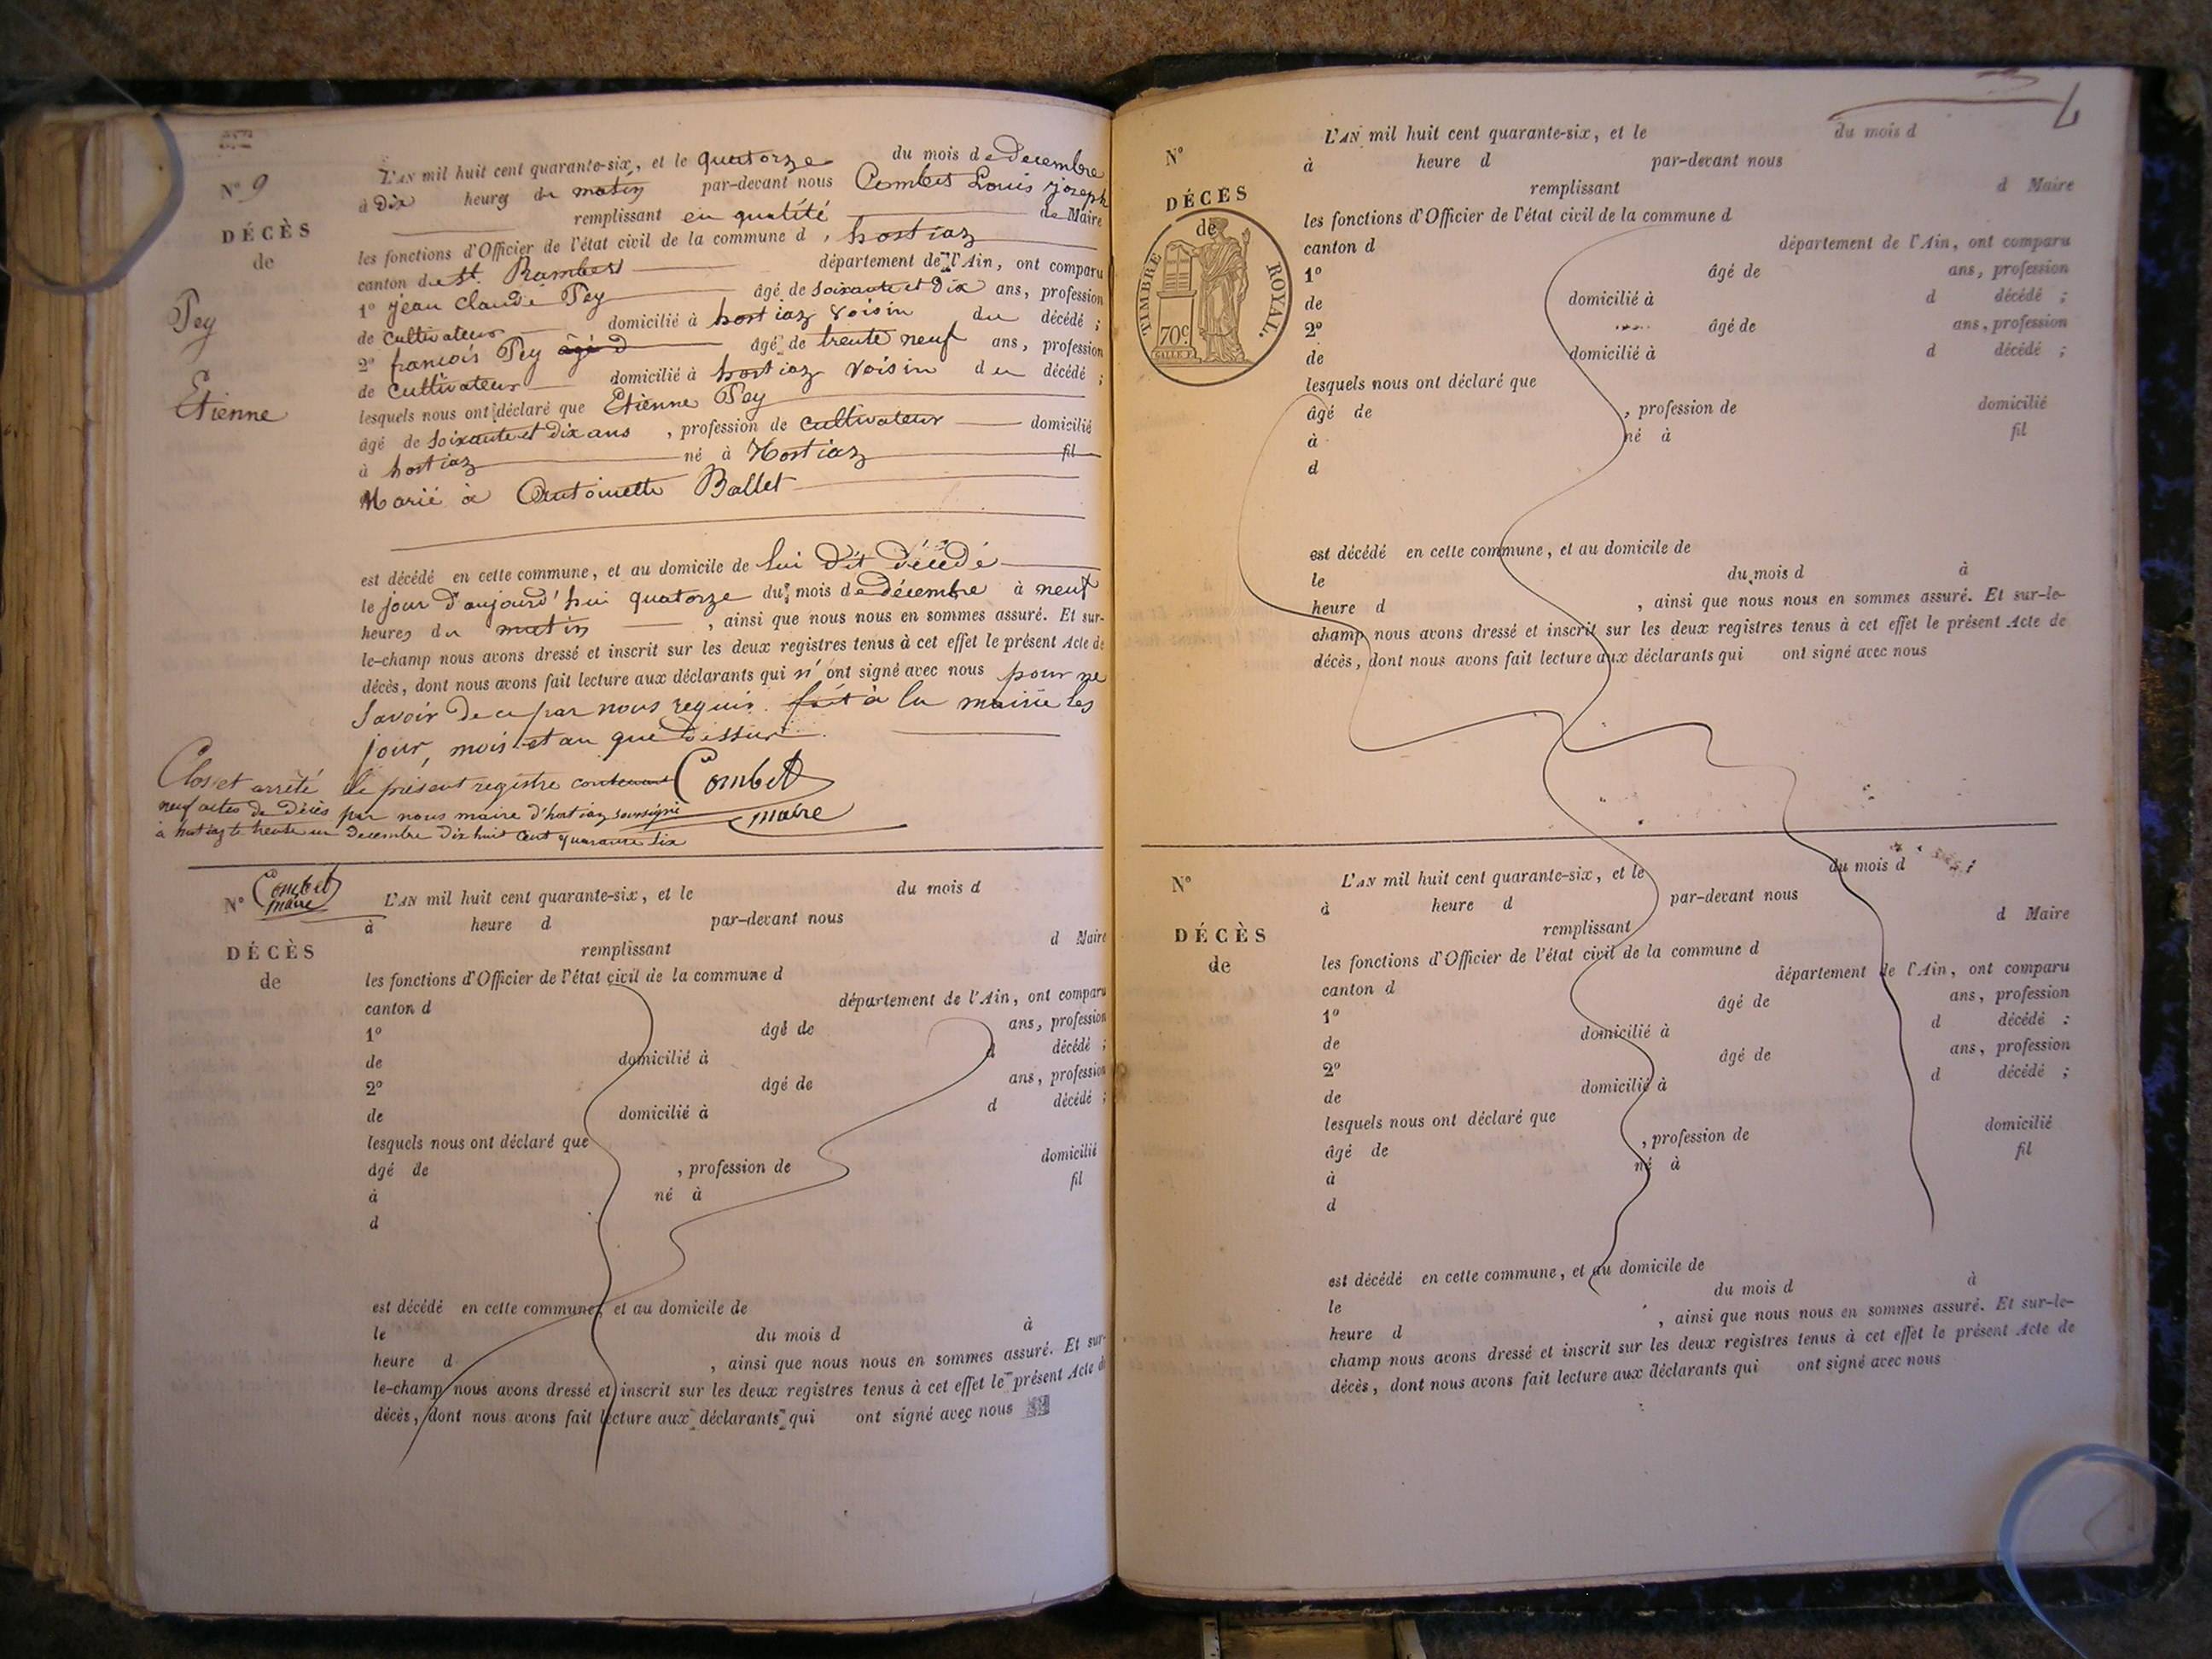 N° 9
DÉCÈS
de
Pey
Etienne
L'AN mil huit cent quarante-six, et le quatorze du mois de Decembre
à Dix heures du matin par-devant nous Combet Louis joseph
remplissant en qualité de Maire
les fonctions d'Officier de l'état civil de la commune d, hostiaz
canton de st. Rambert département de l'Ain, ont comparu
1° jean Claude Pey âgé de soixante et Dix ans, profession
de cultivateur domicilié à hostiaz voisin du décédé ;
2° francois Pey âgé d âgé de trente neuf ans, profession
de cultivateur domicilié à hostiaz voisin du décédé ;
lesquels nous ont déclaré que Etienne Pey
âgé de soixante et dix ans, profession de cultivateur domicilié
à hostiaz né à Hostiaz fil
Marié à Antoinette Ballet
est décédé en cette commune, et au domicile de lui Dit Décédé
le jour D'aujourd'hui quatorze du mois de décembre à neuf
heures du matin, ainsi que nous nous en sommes assuré. Et sur-
le-champ nous avons dressé et inscrit sur les deux registres tenus à cet effet le présent Acte de
décès, dont nous avons fait lecture aux déclarants qui n'ont signé avec nous pour ne
savoir De ce par nous requis. fait à la mairie les
jour, mois et an que Dessus.
Clos et arrêté le présent registre contenant Combet
neuf actes de Décès par nous maire d'hostiaz soussigné maire
à hostiaz le trente un Decembre Dix huit Cent quarante six
Combet
maire
N°
DÉCÈS
de
L'AN mil huit cent quarante-six, et le du mois d
à heure d par-devant nous
remplissant d Maire
les fonctions d'Officier de l'état civil de la commune d
canton d département de l'Ain, ont comparu
1° âgé de ans, profession
de domicilié à d décédé ;
2° âgé de ans, profession
de domicilié à d décédé ;
lesquels nous ont déclaré que
âgé de , profession de domicilié
à né à fil
d
est décédé en cette commune, et au domicile de
le du mois d à
heure d , ainsi que nous nous en sommes assuré. Et sur-
le-champ nous avons dressé et inscrit sur les deux registres tenus à cet effet le présent Acte de
décès, dont nous avons fait lecture aux déclarants qui ont signé avec nous
N°
DÉCÈS
de
TIMBRE ROYAL.
70c
L'AN mil huit cent quarante-six, et le du mois d
à heure d par-devant nous
remplissant d Maire
les fonctions d'Officier de l'état civil de la commune d
canton d département de l'Ain, ont comparu
1° âgé de ans, profession
de domicilié à d décédé ;
2° âgé de ans, profession
de domicilié à d décédé ;
lesquels nous ont déclaré que
âgé de , profession de domicilié
à né à fil
d
est décédé en cette commune, et au domicile de
le du mois d à
heure d , ainsi que nous nous en sommes assuré. Et sur-le-
champ nous avons dressé et inscrit sur les deux registres tenus à cet effet le présent Acte de
décès, dont nous avons fait lecture aux déclarants qui ont signé avec nous
N°
DÉCÈS
de
L'AN mil huit cent quarante-six, et le du mois d
à heure d par-devant nous
remplissant d Maire
les fonctions d'Officier de l'état civil de la commune d
canton d département de l'Ain, ont comparu
1° âgé de ans, profession
de domicilié à d décédé :
2° âgé de ans, profession
de domicilié à d décédé ;
lesquels nous ont déclaré que
âgé de , profession de domicilié
à né à fil
d
est décédé en cette commune, et au domicile de
le du mois d à
heure d , ainsi que nous nous en sommes assuré. Et sur-le-
champ nous avons dressé et inscrit sur les deux registres tenus à cet effet le présent Acte de
décès, dont nous avons fait lecture aux déclarants qui ont signé avec nous